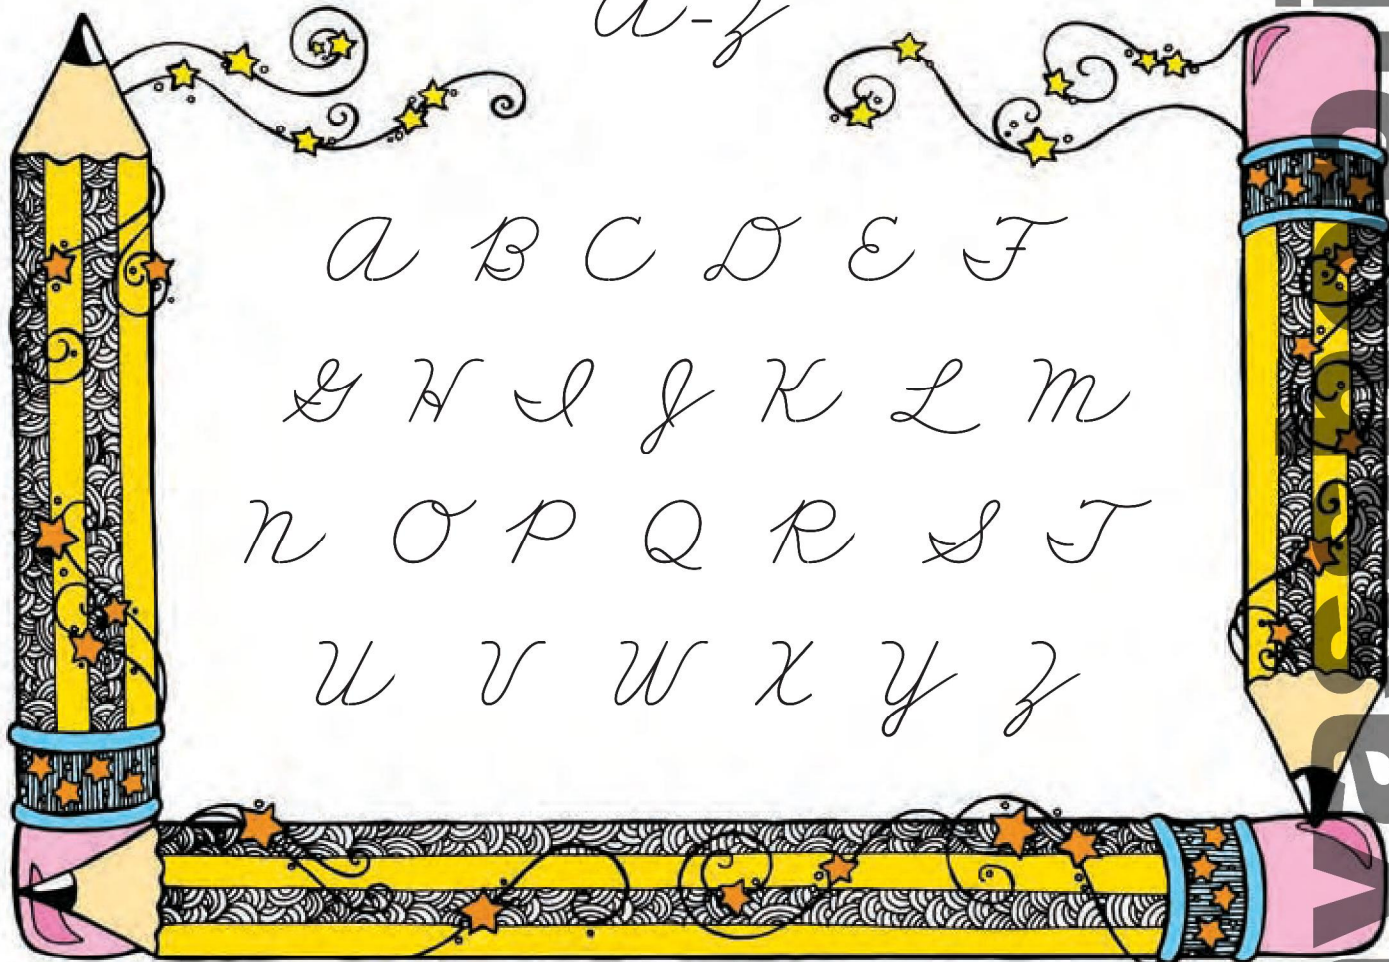 A-Z
A B C D E F
G H I J K L M
N O P Q R S T
U V W X Y Z